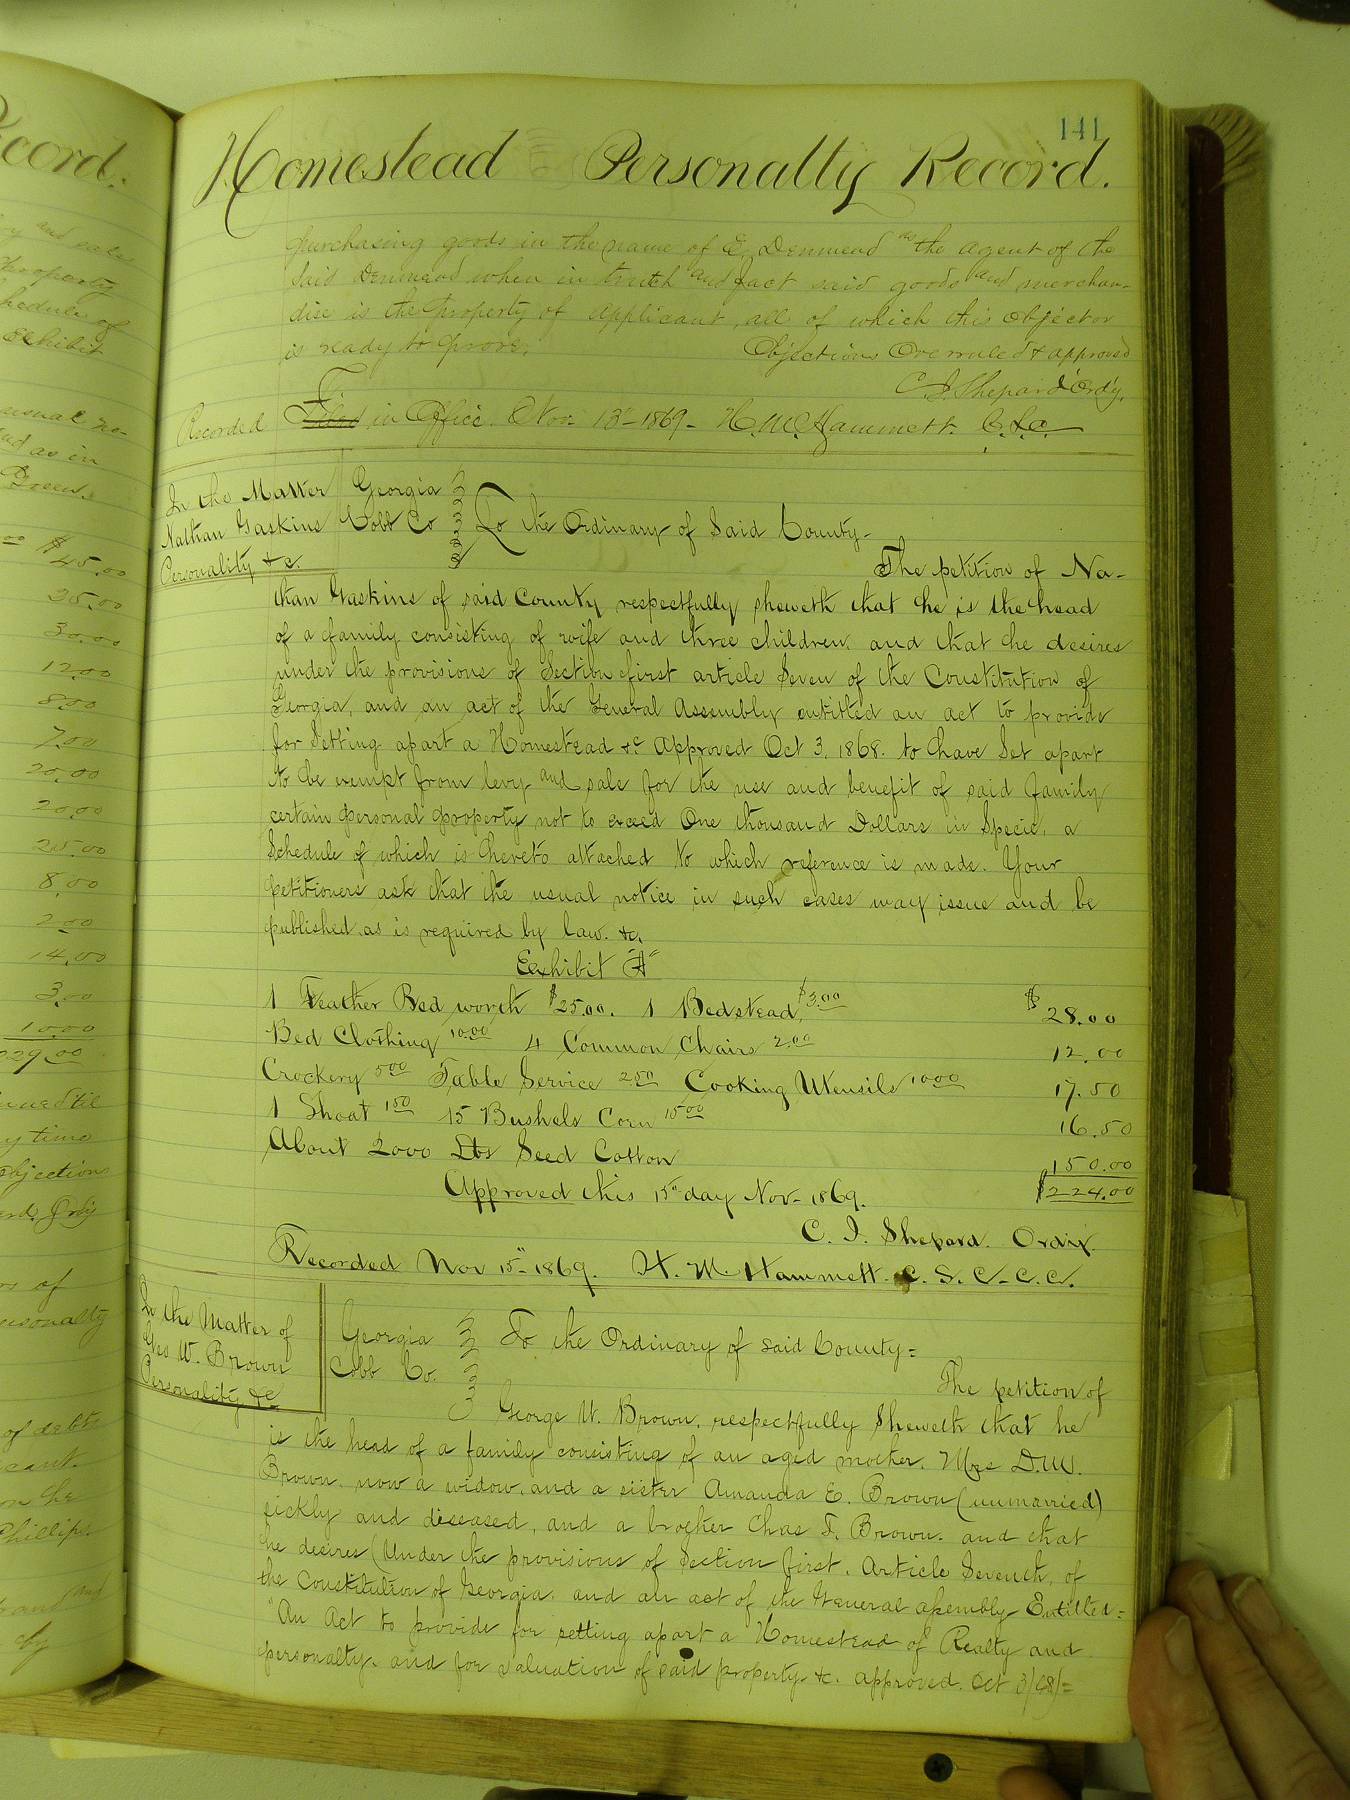 141
Homestead Personalty Record.
purchasing goods in the name of E. Denmead as the agent of the
said Denmead when in truth and fact said goods and merchan-
dise is the property of applicant, all of which this objector
is ready to prove.
Objections Overruled & approved
C. J. Shepard Ord'y.
Recorded Filed in Office. Nov. 13" 1869 - H. M. Hammett. C.S.C.
In the Matter
Nathan Gaskins
Personality &c.
Georgia
Cobb Co
To the Ordinary of Said County-
The petition of Na-
than Gaskins of said County respectfully sheweth that he is the head
of a family consisting of wife and three children, and that he desires
under the provisions of Section first article Seven of the Constitution of
Georgia, and an act of the General Assembly entitled an act to provide
for Setting apart a Homestead &c Approved Oct 3, 1868. to have Set apart
to be exempt from levy and sale for the use and benefit of said family
certain personal property not to exceed One thousand Dollars in Specie, a
Schedule of which is hereto attached to which reference is made. Your
petitioners ask that the usual notice in such cases may issue and be
published as is required by law. &c.
Exhibit "A"
1 Feather Bed worth $25.00. 1 Bedstead, $3.00 $28.00
Bed Clothing 10.00 4 Common Chairs 2.00 12.00
Crockery 5.00 Table Service 2.50 Cooking Utensils 10.00 17.50
1 Shoat 1.50 15 Bushels Corn 15.00 16.50
About 2000 Lbs Seed Cotton 150.00
$224.00
Approved this 15" day Nov- 1869.
C. J. Shepard. Ordy.
Recorded Nov 15" 1869. H. M. Hammett. C. S. C - C. C.
In the Matter of
Geo W. Brown
Personality &c
Georgia
Cobb Co.
To the Ordinary of said County=
The petition of
George W. Brown, respectfully Sheweth that he
is the head of a family consisting of an aged mother, Mrs D.W.
Brown. now a widow, and a sister Amanda E. Brown (unmarried)
sickly and diseased, and a brother Chas T. Brown. and that
he desires (Under the provisions of Section first. Article Seventh, of
the Constitution of Georgia, and an act of the General assembly Entitled=
"An Act to provide for setting apart a Homestead of Realty and
personalty. and for valuation of said property &c. approved. Oct 3/68)=